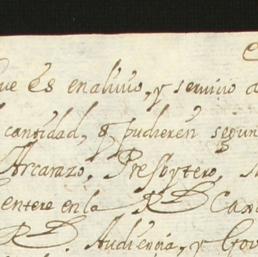 que es en alivio, y servicio a
cantidad, q pudieren segun
Arcarazo, Presbytero,
entere en la Rl Cax
Rl Audiencia, y Gov